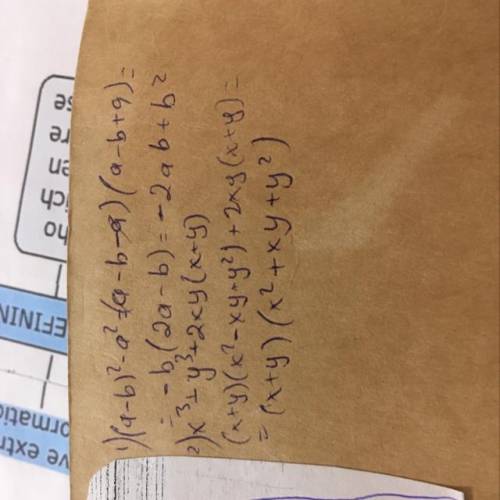 1) (a-b)²-a²=(a-b-a)(a-b+a)=
= -b(2a-b)=-2ab+b²
2) x³+y³+2xy(x+y)
(x+y)(x²-xy+y²)+2xy(x+y)=
=(x+y)(x²+xy+y²)
ho
ich
en
re
se
EFINI
ve extr
ormatio